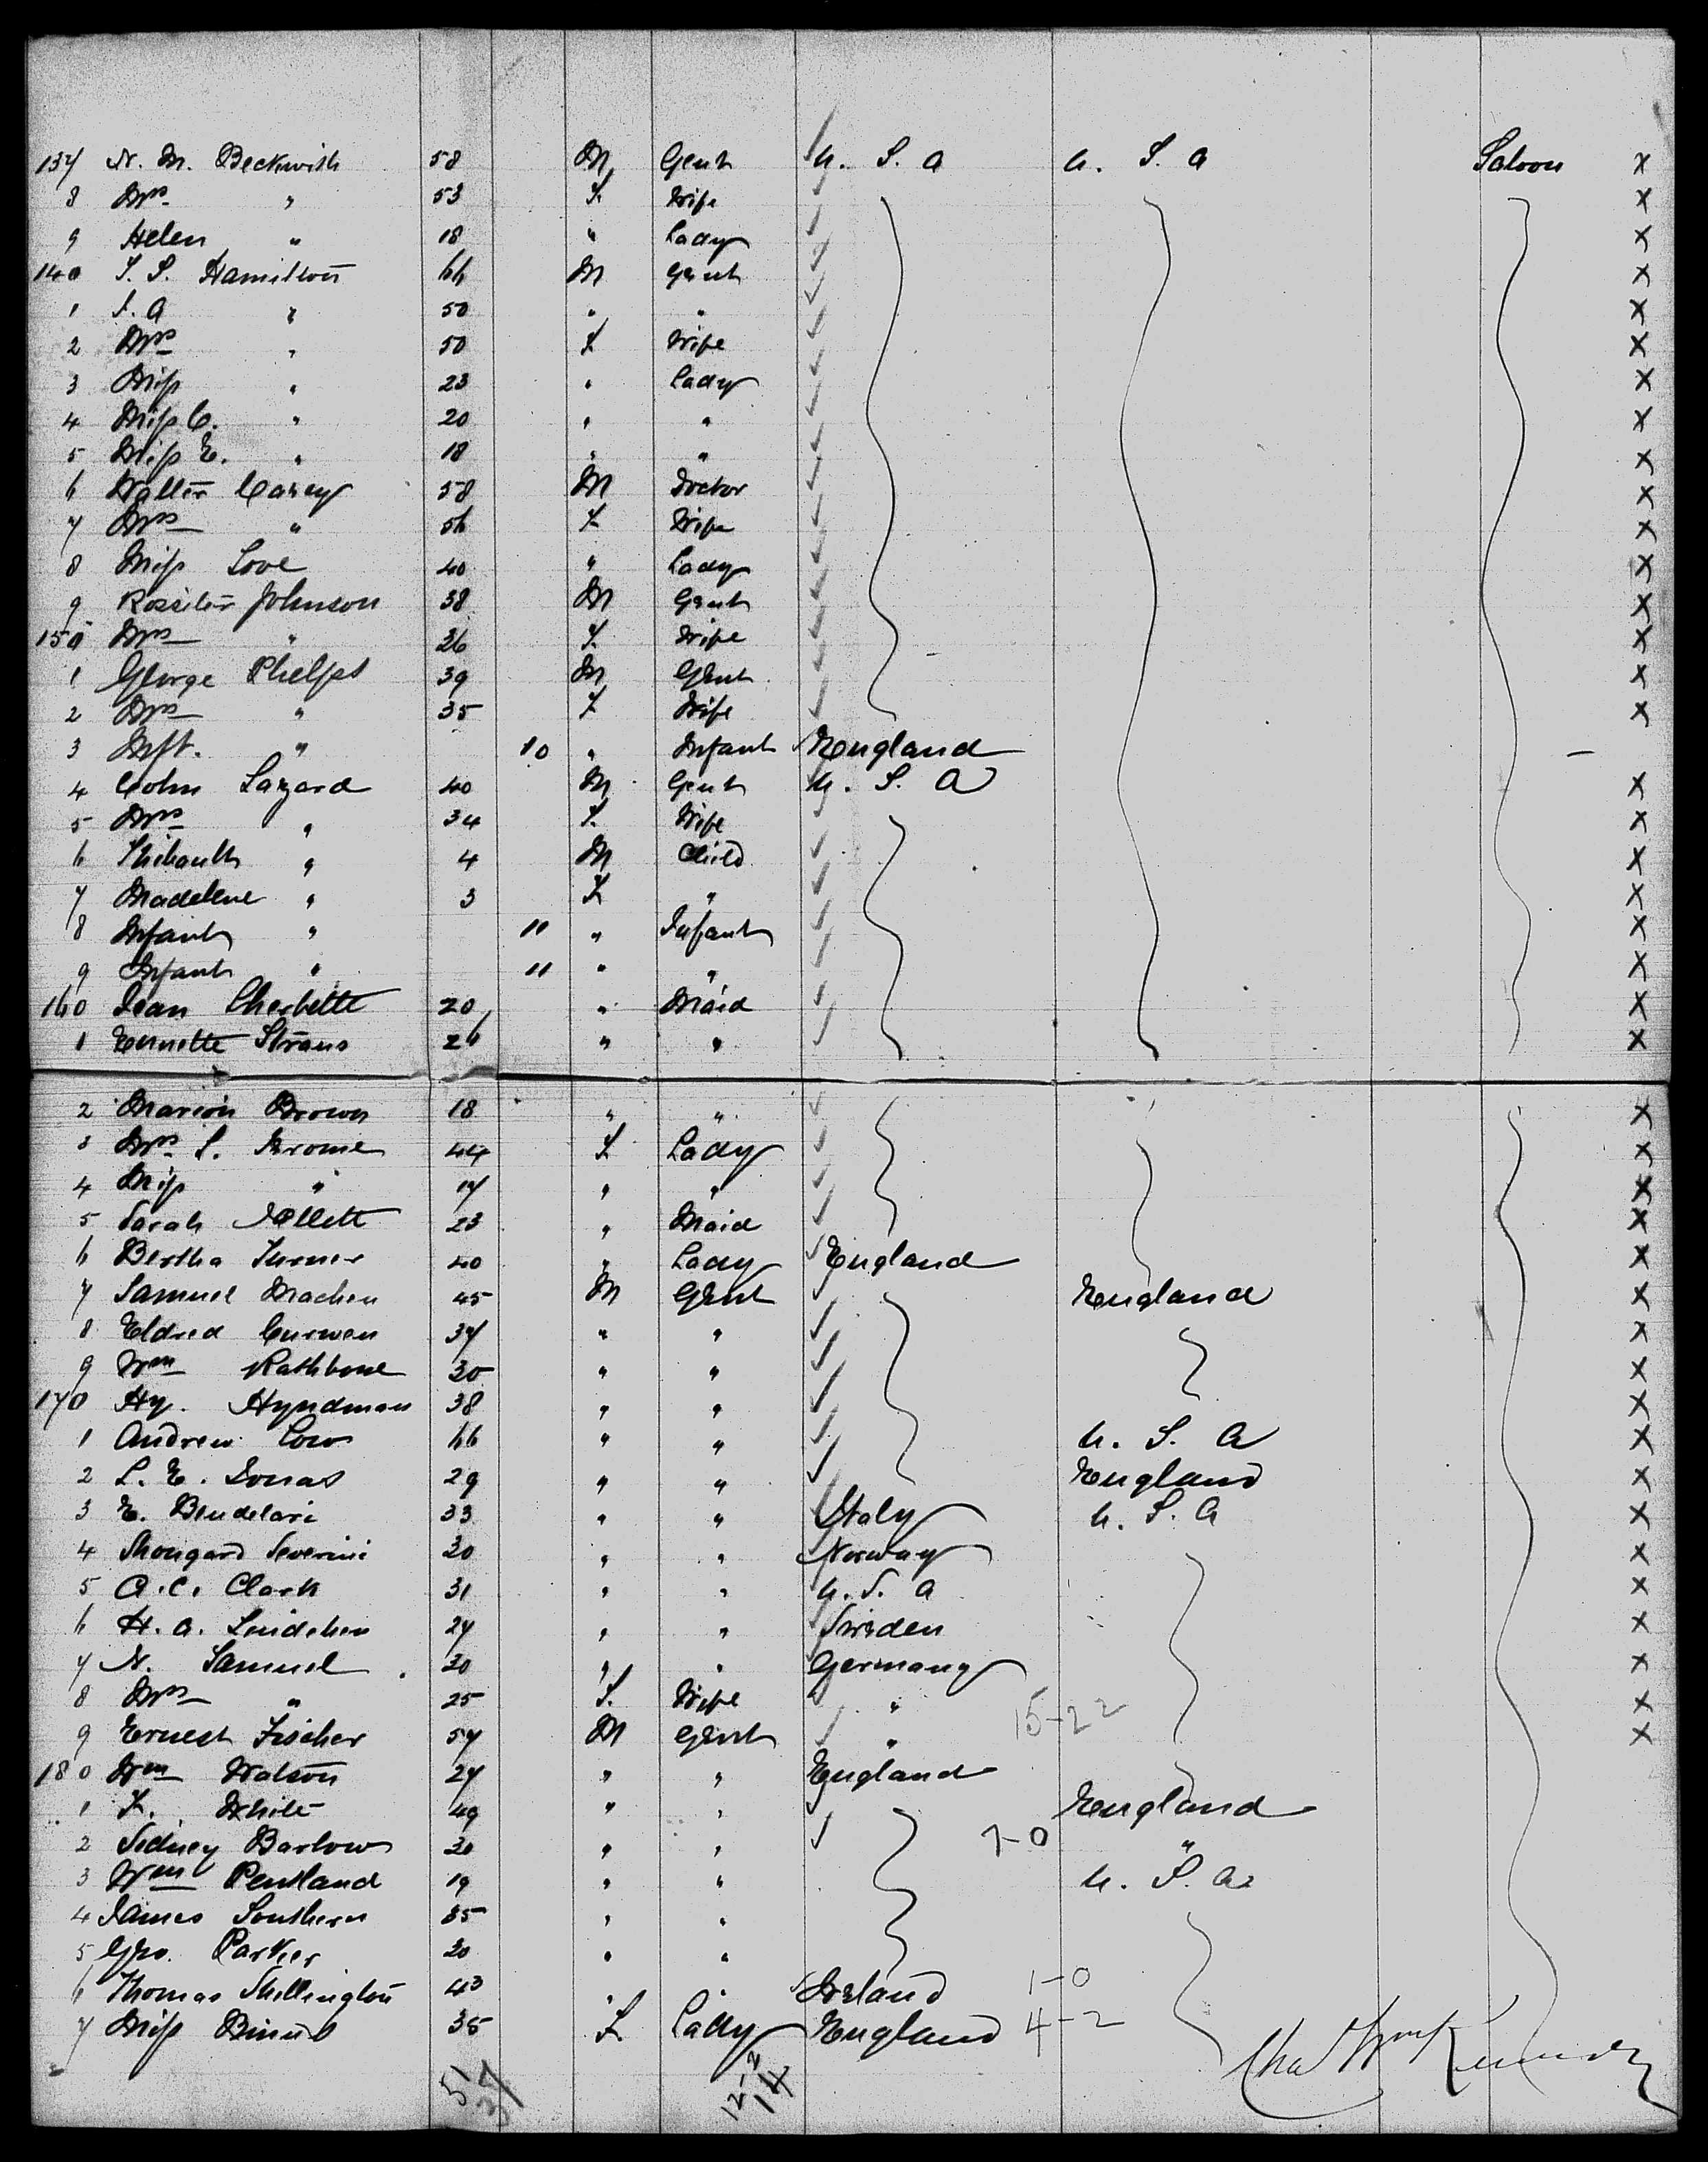 137 N. M. Beckwith 58 M Gent U. S. A U. S. A Saloon X
8 Mrs " 53 F. Wife X
9 Helen " 18 " Lady X
140 S. S. Hamilton 66 M Gent X
1 S. A " 50 " " X
2 Mrs " 50 F Wife X
3 Miss " 23 " Lady X
4 Miss C. " 20 " " X
5 Miss E. " 18 " " X
6 Walter Carey 58 M Doctor X
7 Mrs " 56 F Wife X
8 Miss Love 40 " Lady X
9 Rossiter Johnson 38 M Gent X
150 Mrs " 36 F. Wife X
1 George Phelps 39 M Gent X
2 Mrs " 35 F Wife X
3 Inft. " 10 " Infant England –
4 Cohn Lazard 40 M Gent U. S. A X
5 Mrs " 34 F. Wife X
6 Thibault " 4 M Child X
7 Madelene " 3 F " X
8 Infant " 11 " Infant X
9 Infant " 11 " " X
160 Jean 20 " Maid X
1 Ernette Straus 26 " " X
2 Marion Brown 18 " " X
3 Mrs L. Jerome 44 F Lady X
4 Miss " 17 " " X
5 Sarah 23 " Maid X
6 Bertha Turner 40 " Lady England X
7 Samuel Machen 45 M Gent England X
8 Eldred Curwen 37 " " X
9 Wm Rathbone 30 " " X
170 Hy. Hyndman 38 " " X
1 Andrew Low 66 " " U. S. A X
2 L. E. Jonas 29 " " England X
3 E. Bendelari 33 " " Italy U. S. A X
4 Severini 30 " " Norway X
5 A. C. Clark 31 " " U. S. A X
6 H. A. 27 " " Sweden X
7 N. Samuel 30 " " Germany X
8 Mrs " 25 F. Wife " 15-22 X
9 Ernest Fischer 57 M Gent " X
180 Wm Watson 27 " " England
1 F. White 49 " " England
2 Sidney Barlow 30 " " 7-0 "
3 Wm Pentland 19 " " U. S. A
4 James Southern 35 " "
5 Geo. Parker 30 " "
6 Thomas Shillington 43 " " Ireland 1-0
7 Miss 35 F. Lady England 4-2
51 37 12-2 14